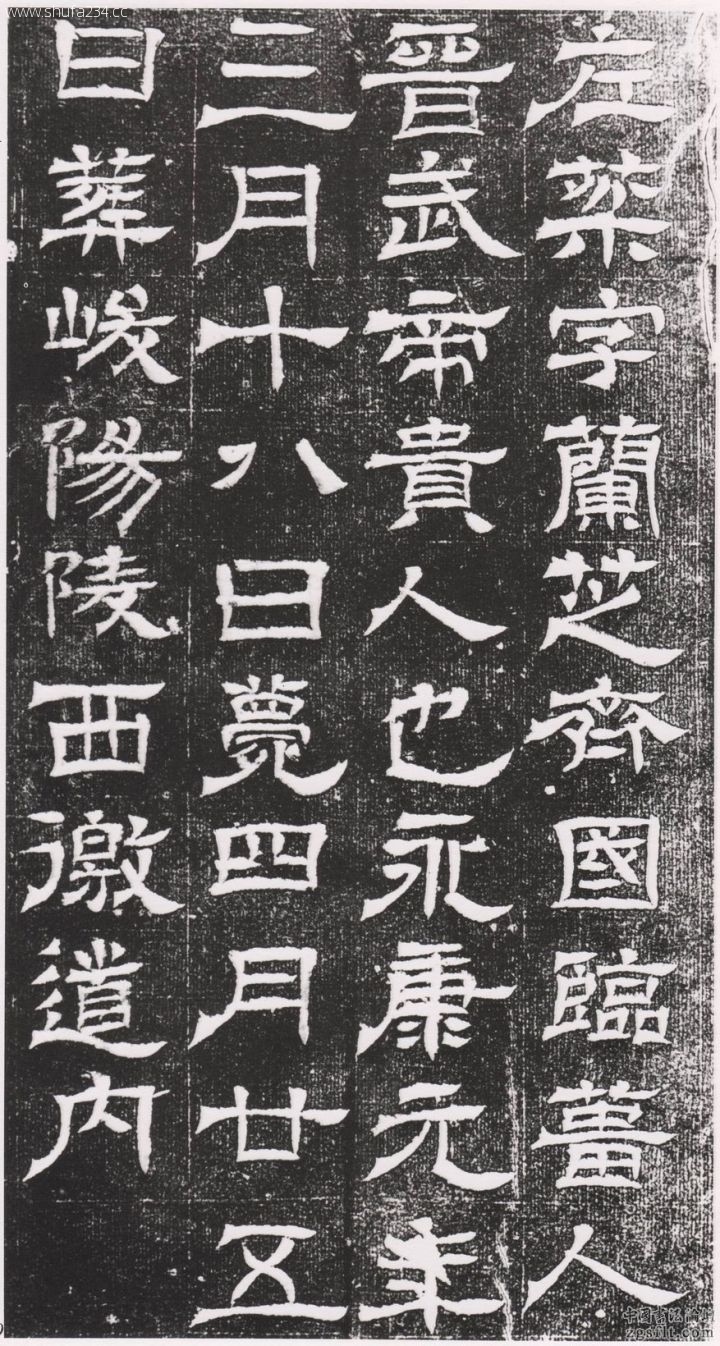 www.shufa234.cc
左棻字蘭芝齊國臨菑人
晉武帝貴人也永康元年
三月十八日薨四月廿五
日葬峻陽陵西徼道内